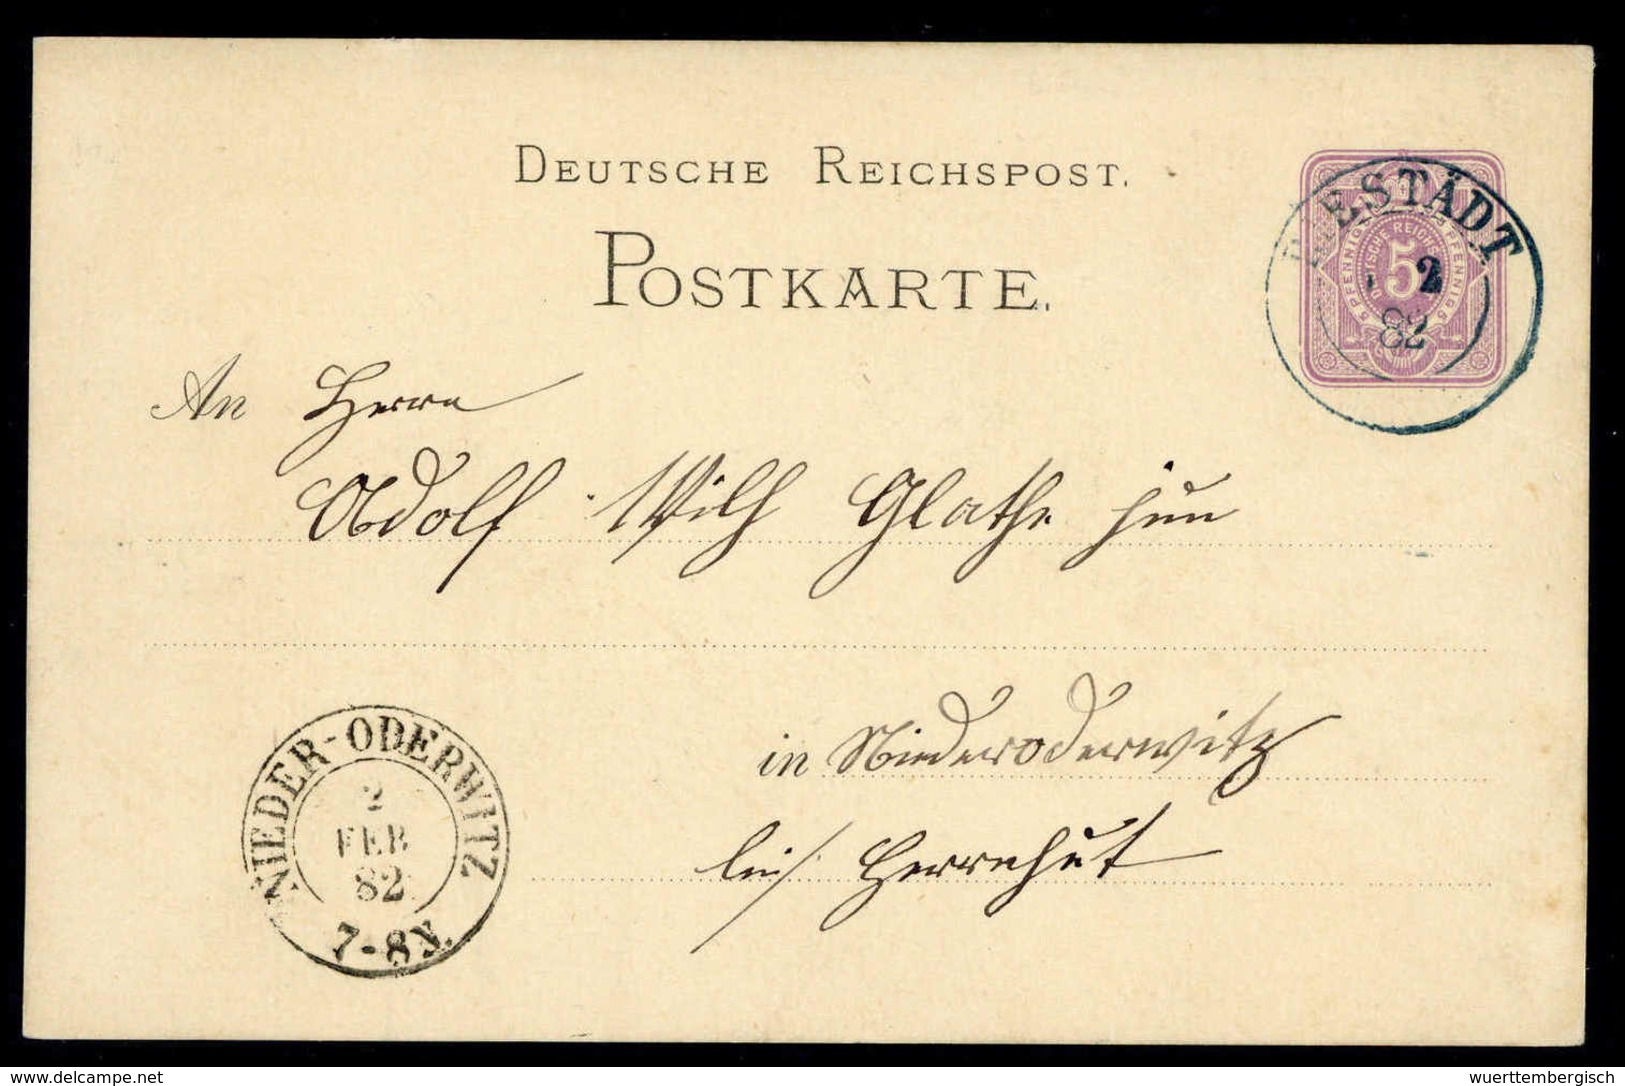 DEUTSCHE REICHSPOST.
POSTKARTE.
5 PFENNIG 5 PFENNIG 5
DEUTSCHE REICHSPOST
5
2
82
An Herrn
Adolf Wilh Glathe jun
in Niederoderwitz
bei/ Herrnhut
NIEDER-ODERWITZ
2
FEB
82
7-8 N.
delcampe.net
wuerttembergisch